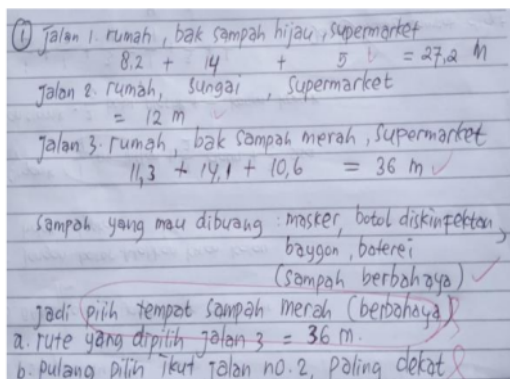 ① Jalan 1. rumah, bak sampah hijau, supermarket
8,2 + 14 + 5 = 27,2 M
Jalan 2. rumah, sungai, supermarket
= 12 m
Jalan 3. rumah, bak sampah merah, supermarket
11,3 + 14,1 + 10,6 = 36 m
Sampah yang mau dibuang : masker, botol diskinfektan,
baygon, baterei
(sampah berbahaya)
jadi pilih tempat sampah merah (berbahaya)
a. rute yang dipilih jalan 3 = 36 m.
b. pulang pilih ikut jalan no. 2, paling dekat